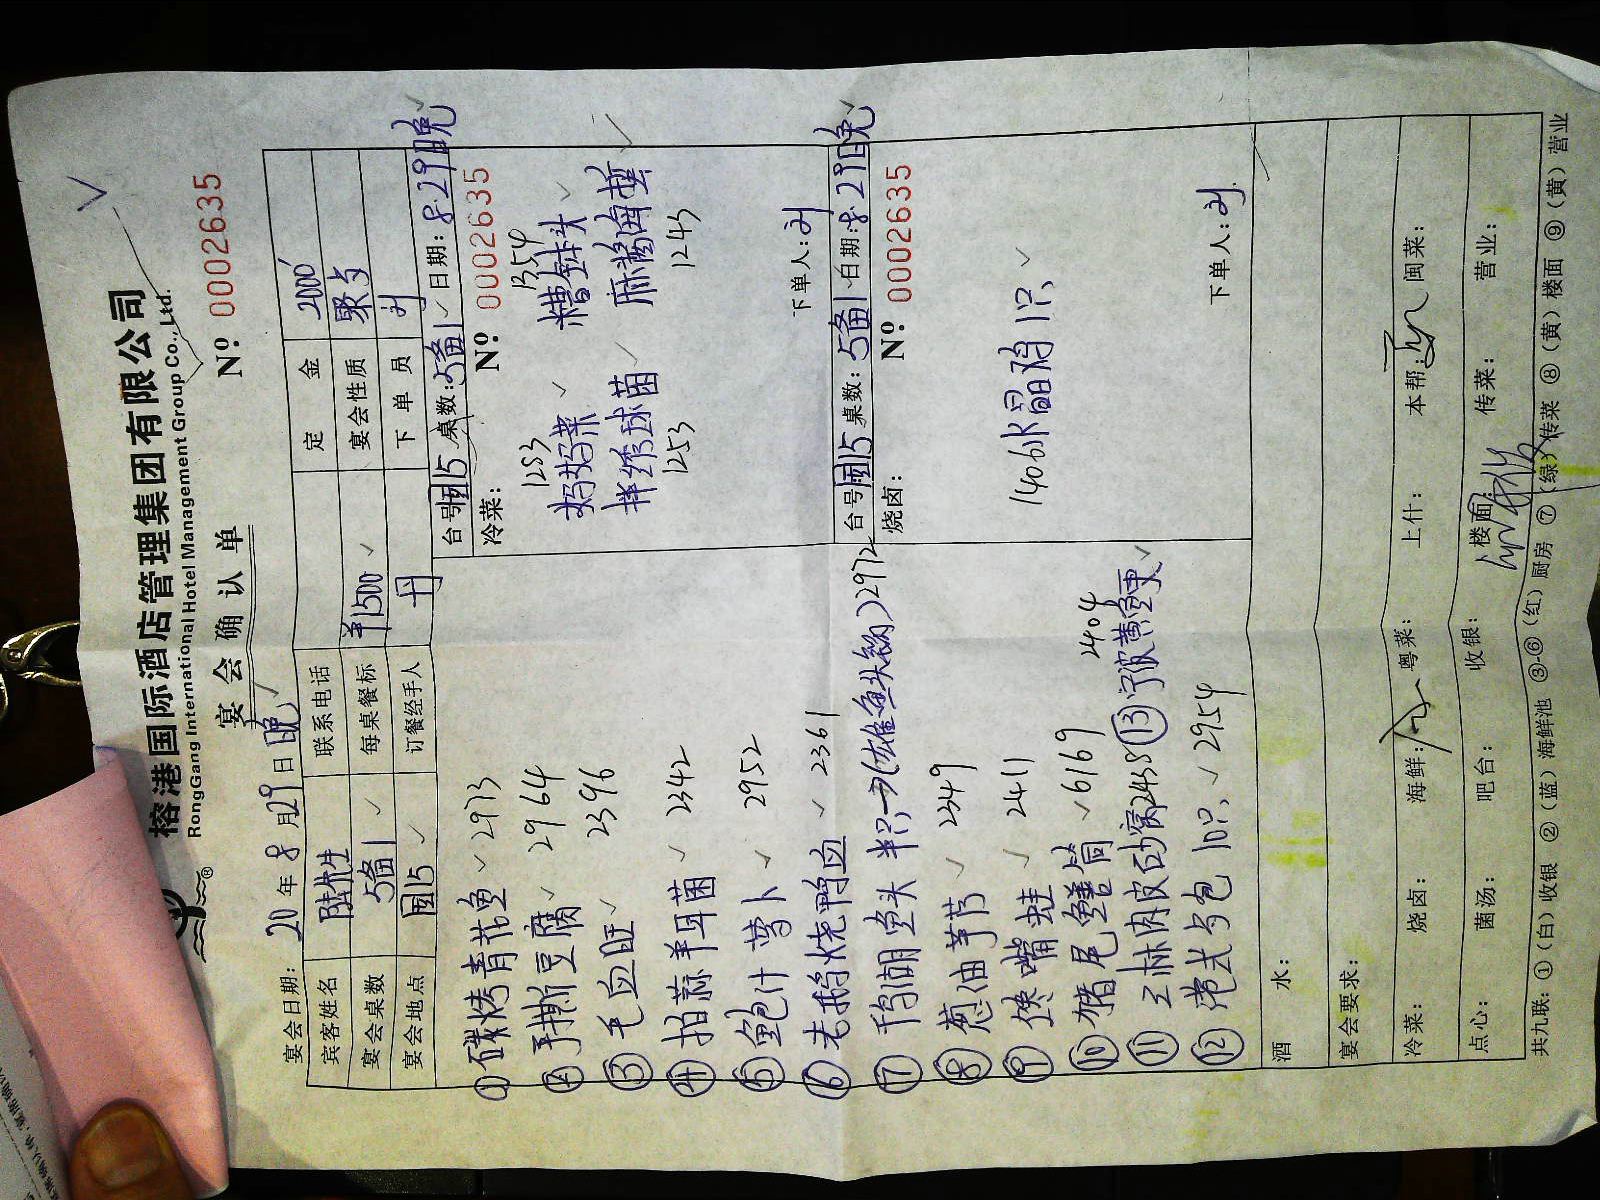 榕港国际酒店管理集团有限公司
RongGang International Hotel Management Group Co., Ltd.
®
宴会确认单
Nº 0002635
宴会日期：20 年 8 月 29 日 晚
宾客姓名 陆先生 联系电话 定金 2000
宴会桌数 5备1 每桌餐标 ¥1500 宴会性质 聚
宴会地点 国15 订餐经手人 丹 下单员 刘
台号 国15 桌数：5备1 日期：8.29晚
冷菜： Nº 0002635
1283 1354
妈妈菜 糟钵头
拌绣球菌 麻酱海蜇
1253 1243
下单人：刘
① 碳烤青花鱼 2973
② 手撕豆腐 2964
③ 毛血旺 2396
④ 拍蒜羊耳菌 2342
⑤ 鲍汁萝卜 2952
⑥ 老鹅烧鸭血 2361
⑦ 千岛湖鱼头半只一九(雄鱼头锅) 2972
⑧ 葱油芋艿 2349
⑨ 馋嘴蛙 2411
⑩ 猪尾鳝筒 6169
⑪ 三林肉皮砂窝 2438
⑫ 港式包 10只 2954
⑬ 宁波黄鱼 2404
台号 国15 桌数：5备1 日期：8.29晚
烧卤： Nº 0002635
1406 水晶鸡 1只
下单人：刘
酒水：
宴会要求：
冷菜： 烧卤： 海鲜： 粤菜： 上什： 本帮： 闽菜：
点心： 菌汤： 吧台： 收银： 楼面： 传菜： 营业：
共九联：①（白）收银 ②（蓝）海鲜池 ③-⑥（红）厨房 ⑦（绿）传菜 ⑧（黄）楼面 ⑨（黄）营业